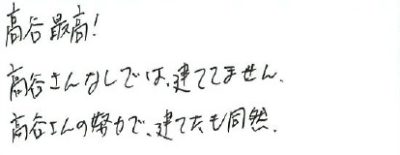 高谷最高!
高谷さんなしでは、建ててません.
高谷さんの努力で、建てたも同然.